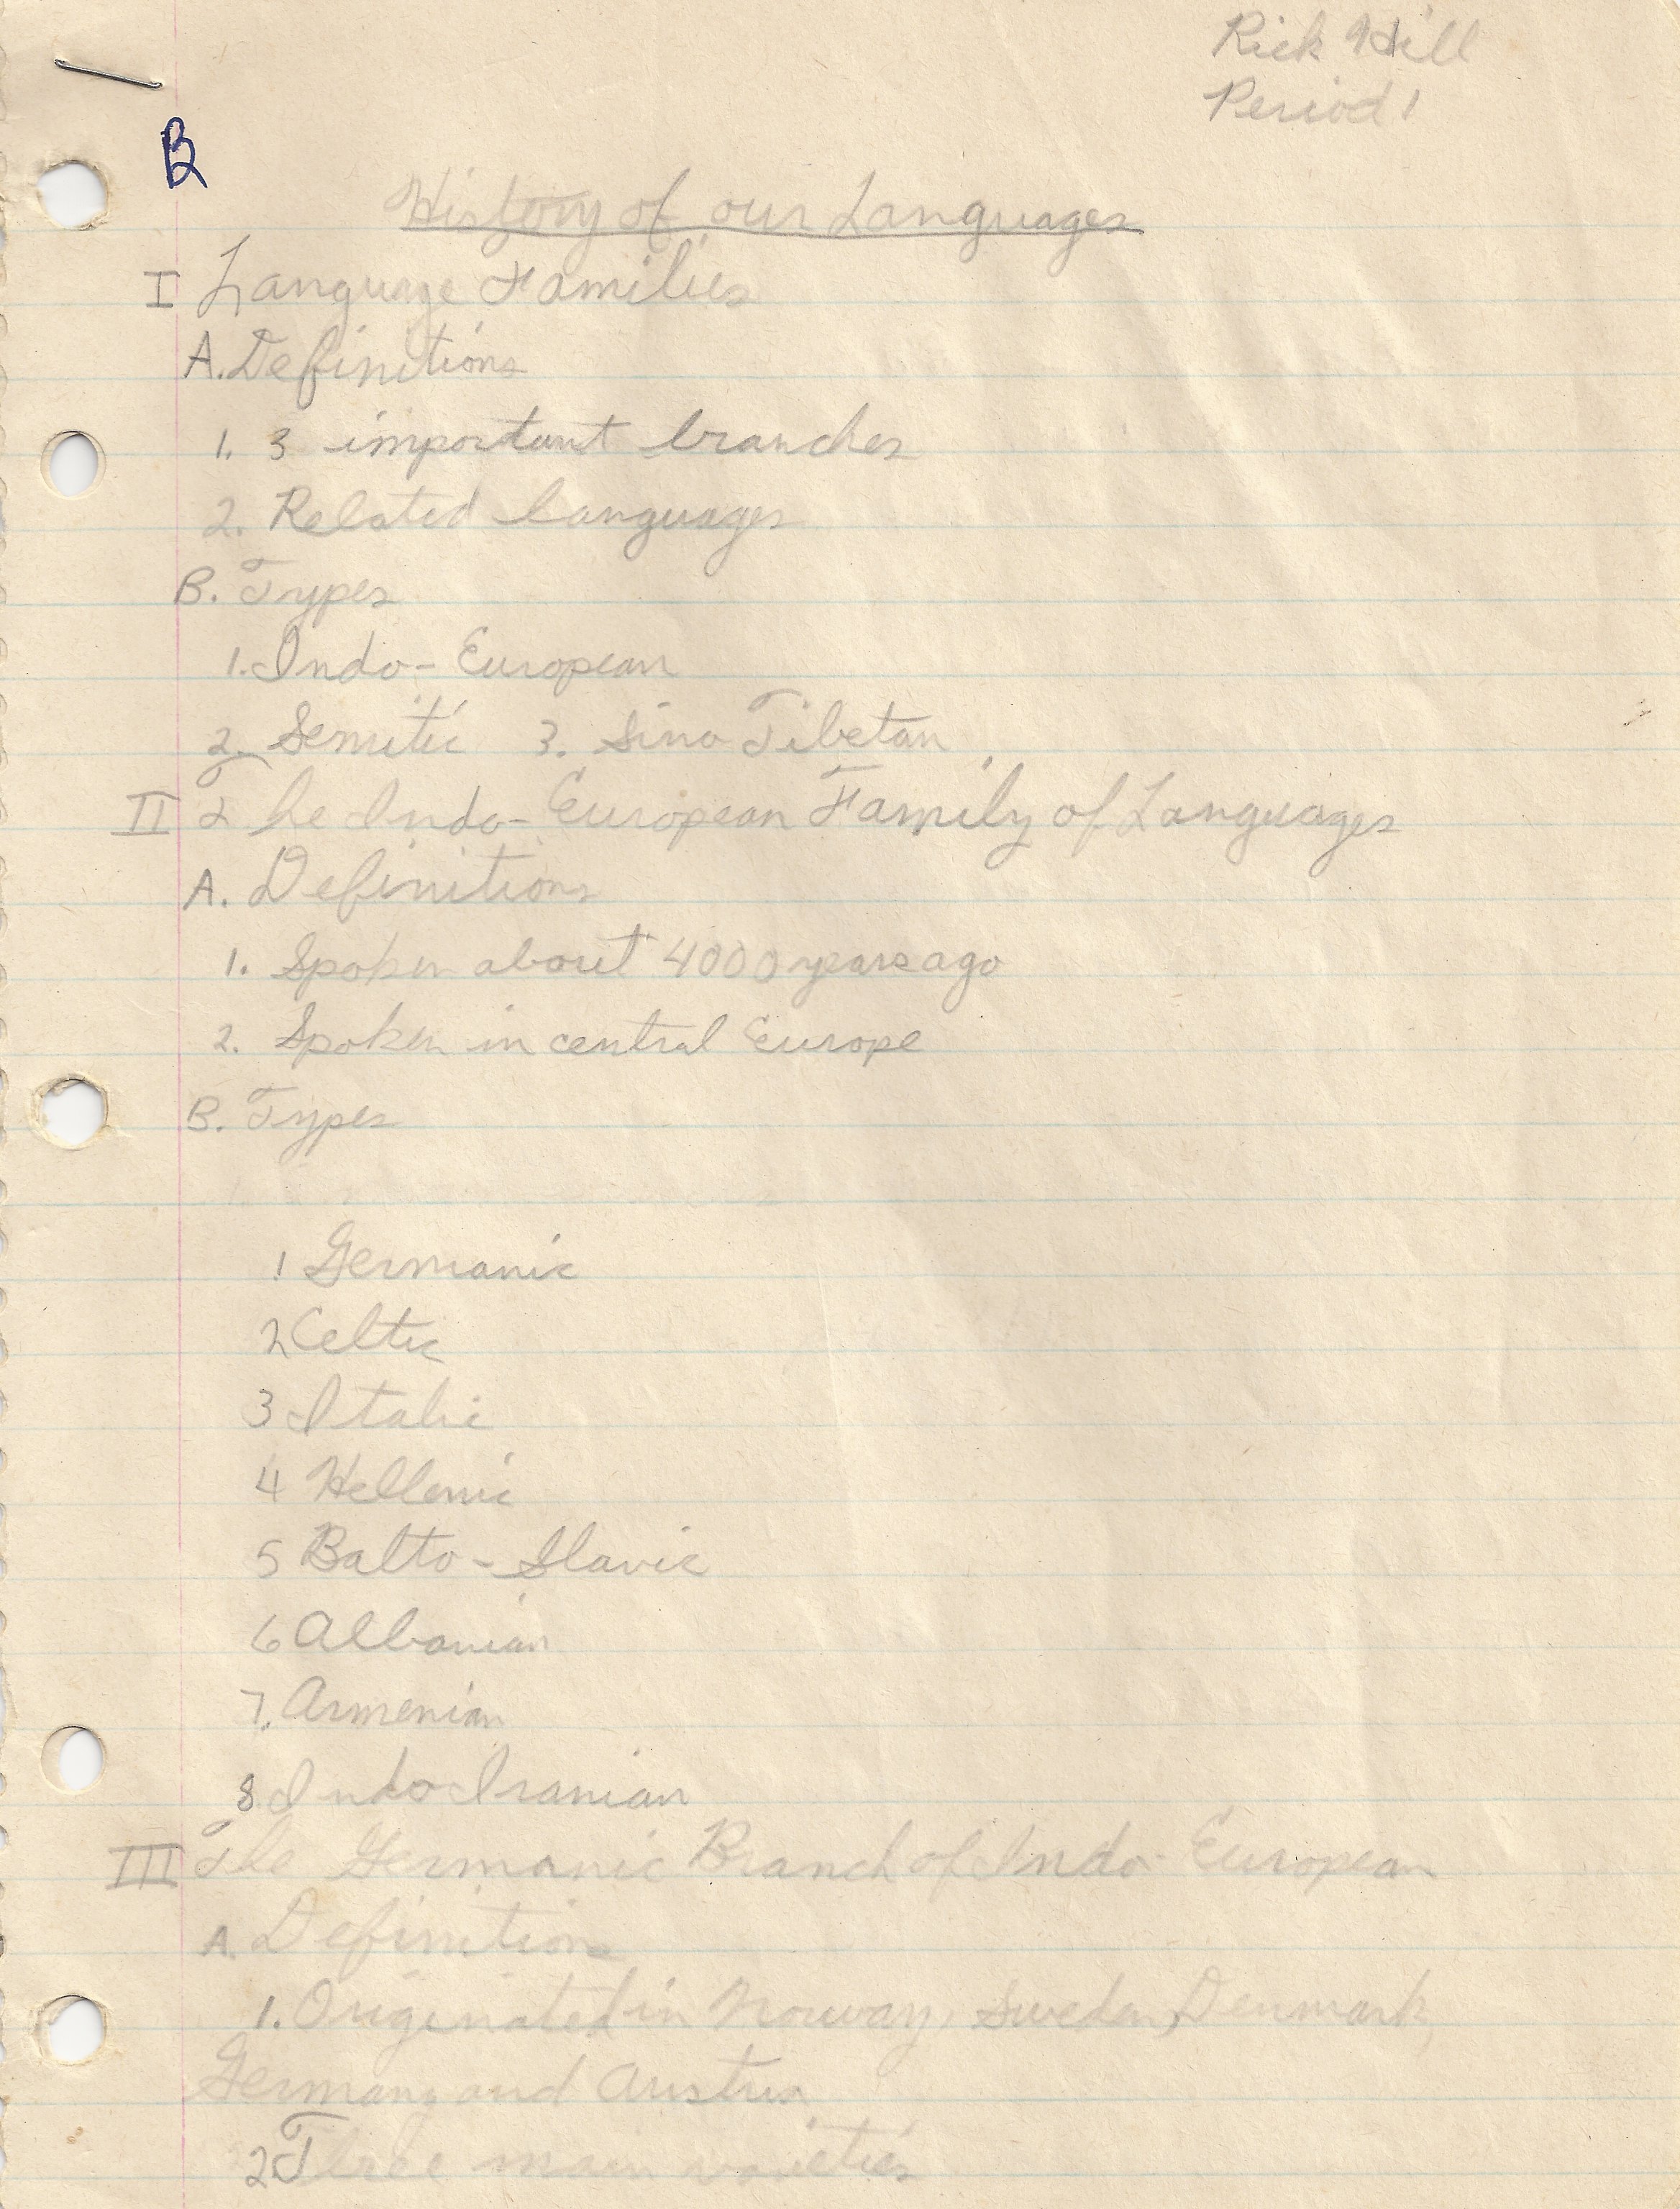 Rick Hill
Period 1
B
History of our Languages
I Language Families
A. Definitions
1. 3 important branches
2. Related languages
B. Types
1. Indo-European
2. Semitic 3. Sino Tibetan
II The Indo-European Family of Languages
A. Definitions
1. Spoken about 4000 years ago
2. Spoken in central Europe
B. Types
1 Germanic
2 Celtic
3 Italic
4 Hellenic
5 Balto-Slavic
6 Albanian
7. Armenian
8. Indo Iranian
III The Germanic Branch of Indo-European
A. Definitions
1. Originated in Norway, Sweden, Denmark,
Germany and Austria
2 Three main varieties